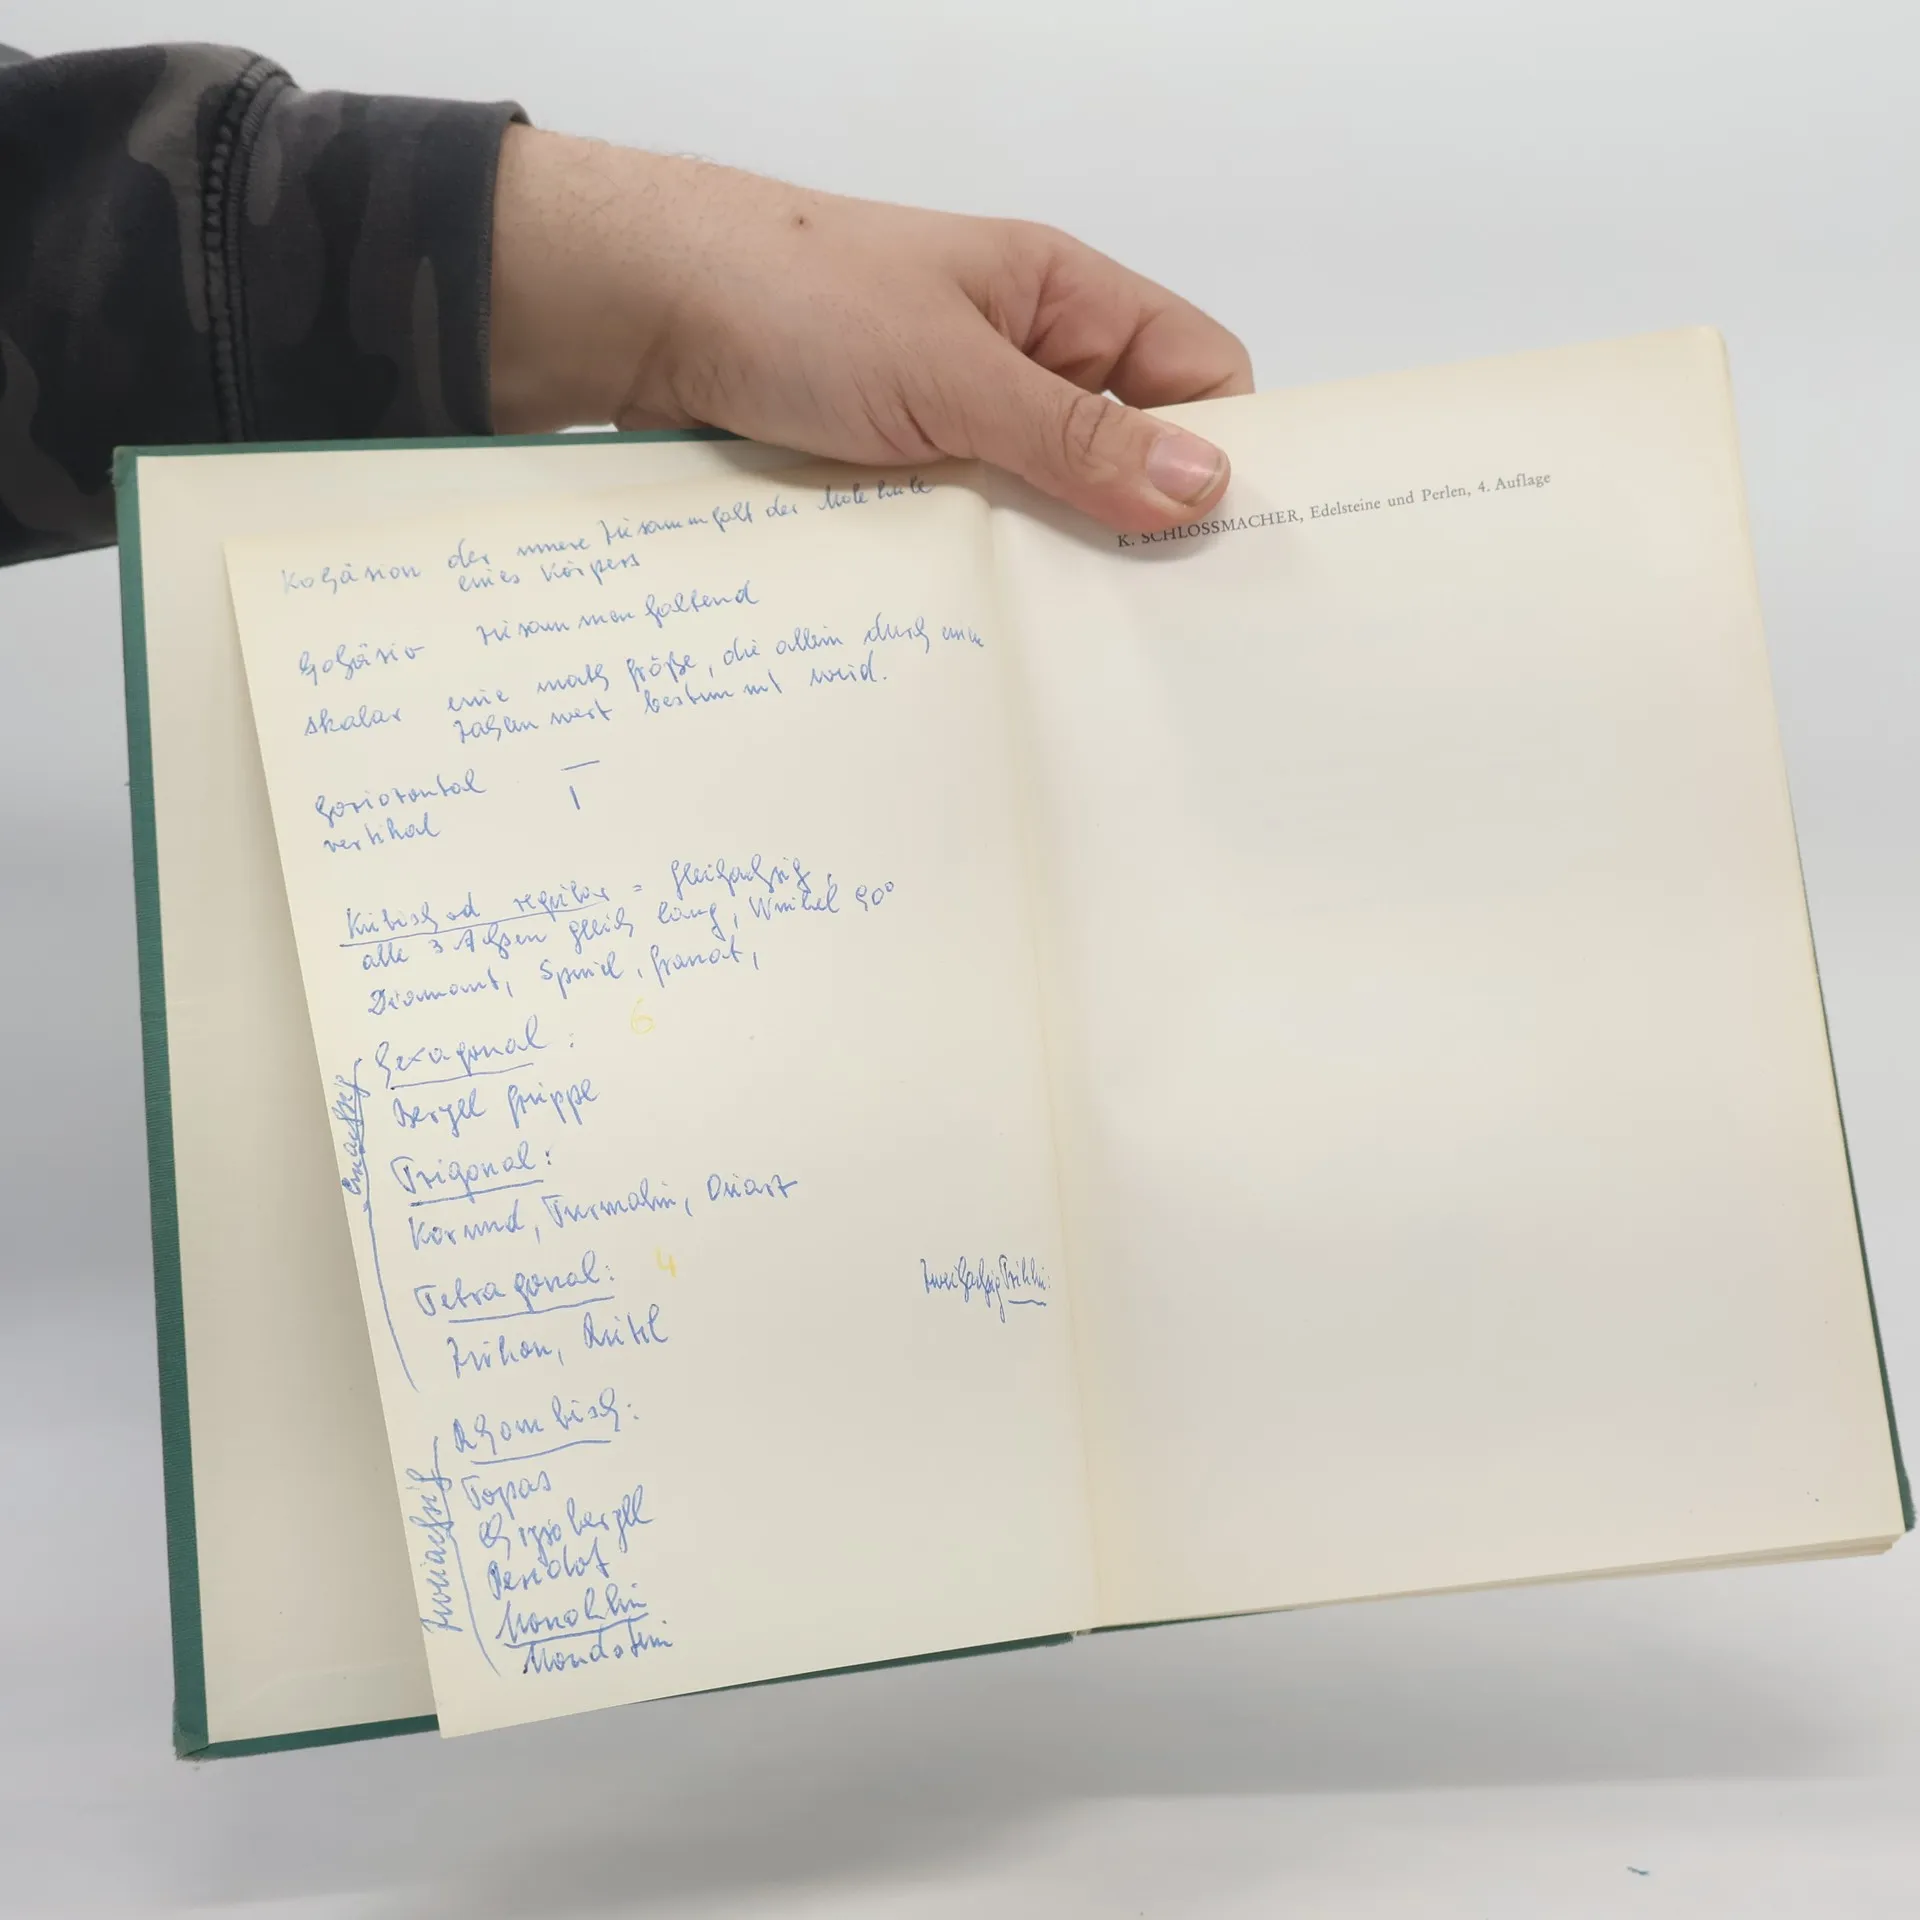 Kohäsion der innere Zusammhalt der Moleküle
eines Körpers
Kohäsiv zusammenhaltend
skalar eine math Größe, die allein durch einen
Zahlenwert bestimmt wird.
horiozontal —
vertikal |
Kubisch od regulär = gleichachsig,
alle 3 Achsen gleich lang, Winkel 90°
Diamant, Spinel, Granat,
Einachsig
Hexagonal: 6
Beryll Gruppe
Trigonal:
Korund, Turmalin, Quarz
Tetragonal: 4
Zirkon, Rutil
Zweiachsig
Rhombisch:
Topas
Chrysoberyll
Peridot
Monoklin
Mondstein
Zweiachsig Triklin:
K. SCHLOSSMACHER, Edelsteine und Perlen, 4. Auflage